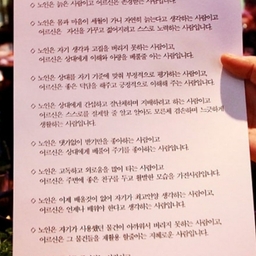 ◇ 노인은 늙은 사람이고,
어르신은 존경받는 사람입니다.
◇ 노인은 몸과 마음이 세월이 가니 자연히 늙는다고 생각하는 사람이고,
어르신은 자신을 가꾸고 젊어지려고 스스로 노력하는 사람입니다.
◇ 노인은 자기 생각과 고집을 버리지 못하는 사람이고,
어르신은 상대에게 이해와 아량을 베풀줄 아는 사람입니다.
◇ 노인은 상대를 자기 기준에 맞춰 부정적으로 평가하는 사람이고,
어르신은 좋은 덕담을 해주고 긍정적으로 이해해 주는 사람입니다.
◇ 노인은 상대에게 간섭하고 잘난체하며 지배하려고 하는 사람이고,
어르신은 스스로를 절제할 줄 알고 알아도 모른체 겸손하며 느긋하게
생활하는 사람입니다.
◇ 노인은 댓가없이 받기만을 좋아하는 사람이고,
어르신은 상대에게 베풀어 주기를 좋아하는 사람입니다.
◇ 노인은 고독하고 외로움을 많이 타는 사람이고,
어르신은 주변에 좋은 친구를 두고 활발한 모습을 가진사람입니다.
◇ 노인은 이제 배울것이 없어 자기가 최고인양 생각하는 사람이고,
어르신은 언제나 배워야 한다고 생각하는 사람입니다.
◇ 노인은 자기가 사용했던 물건이 아까워서 버리지 못하는 사람이고,
어르신은 그 물건들을 재활용 할줄아는 지혜로운 사람입니다.